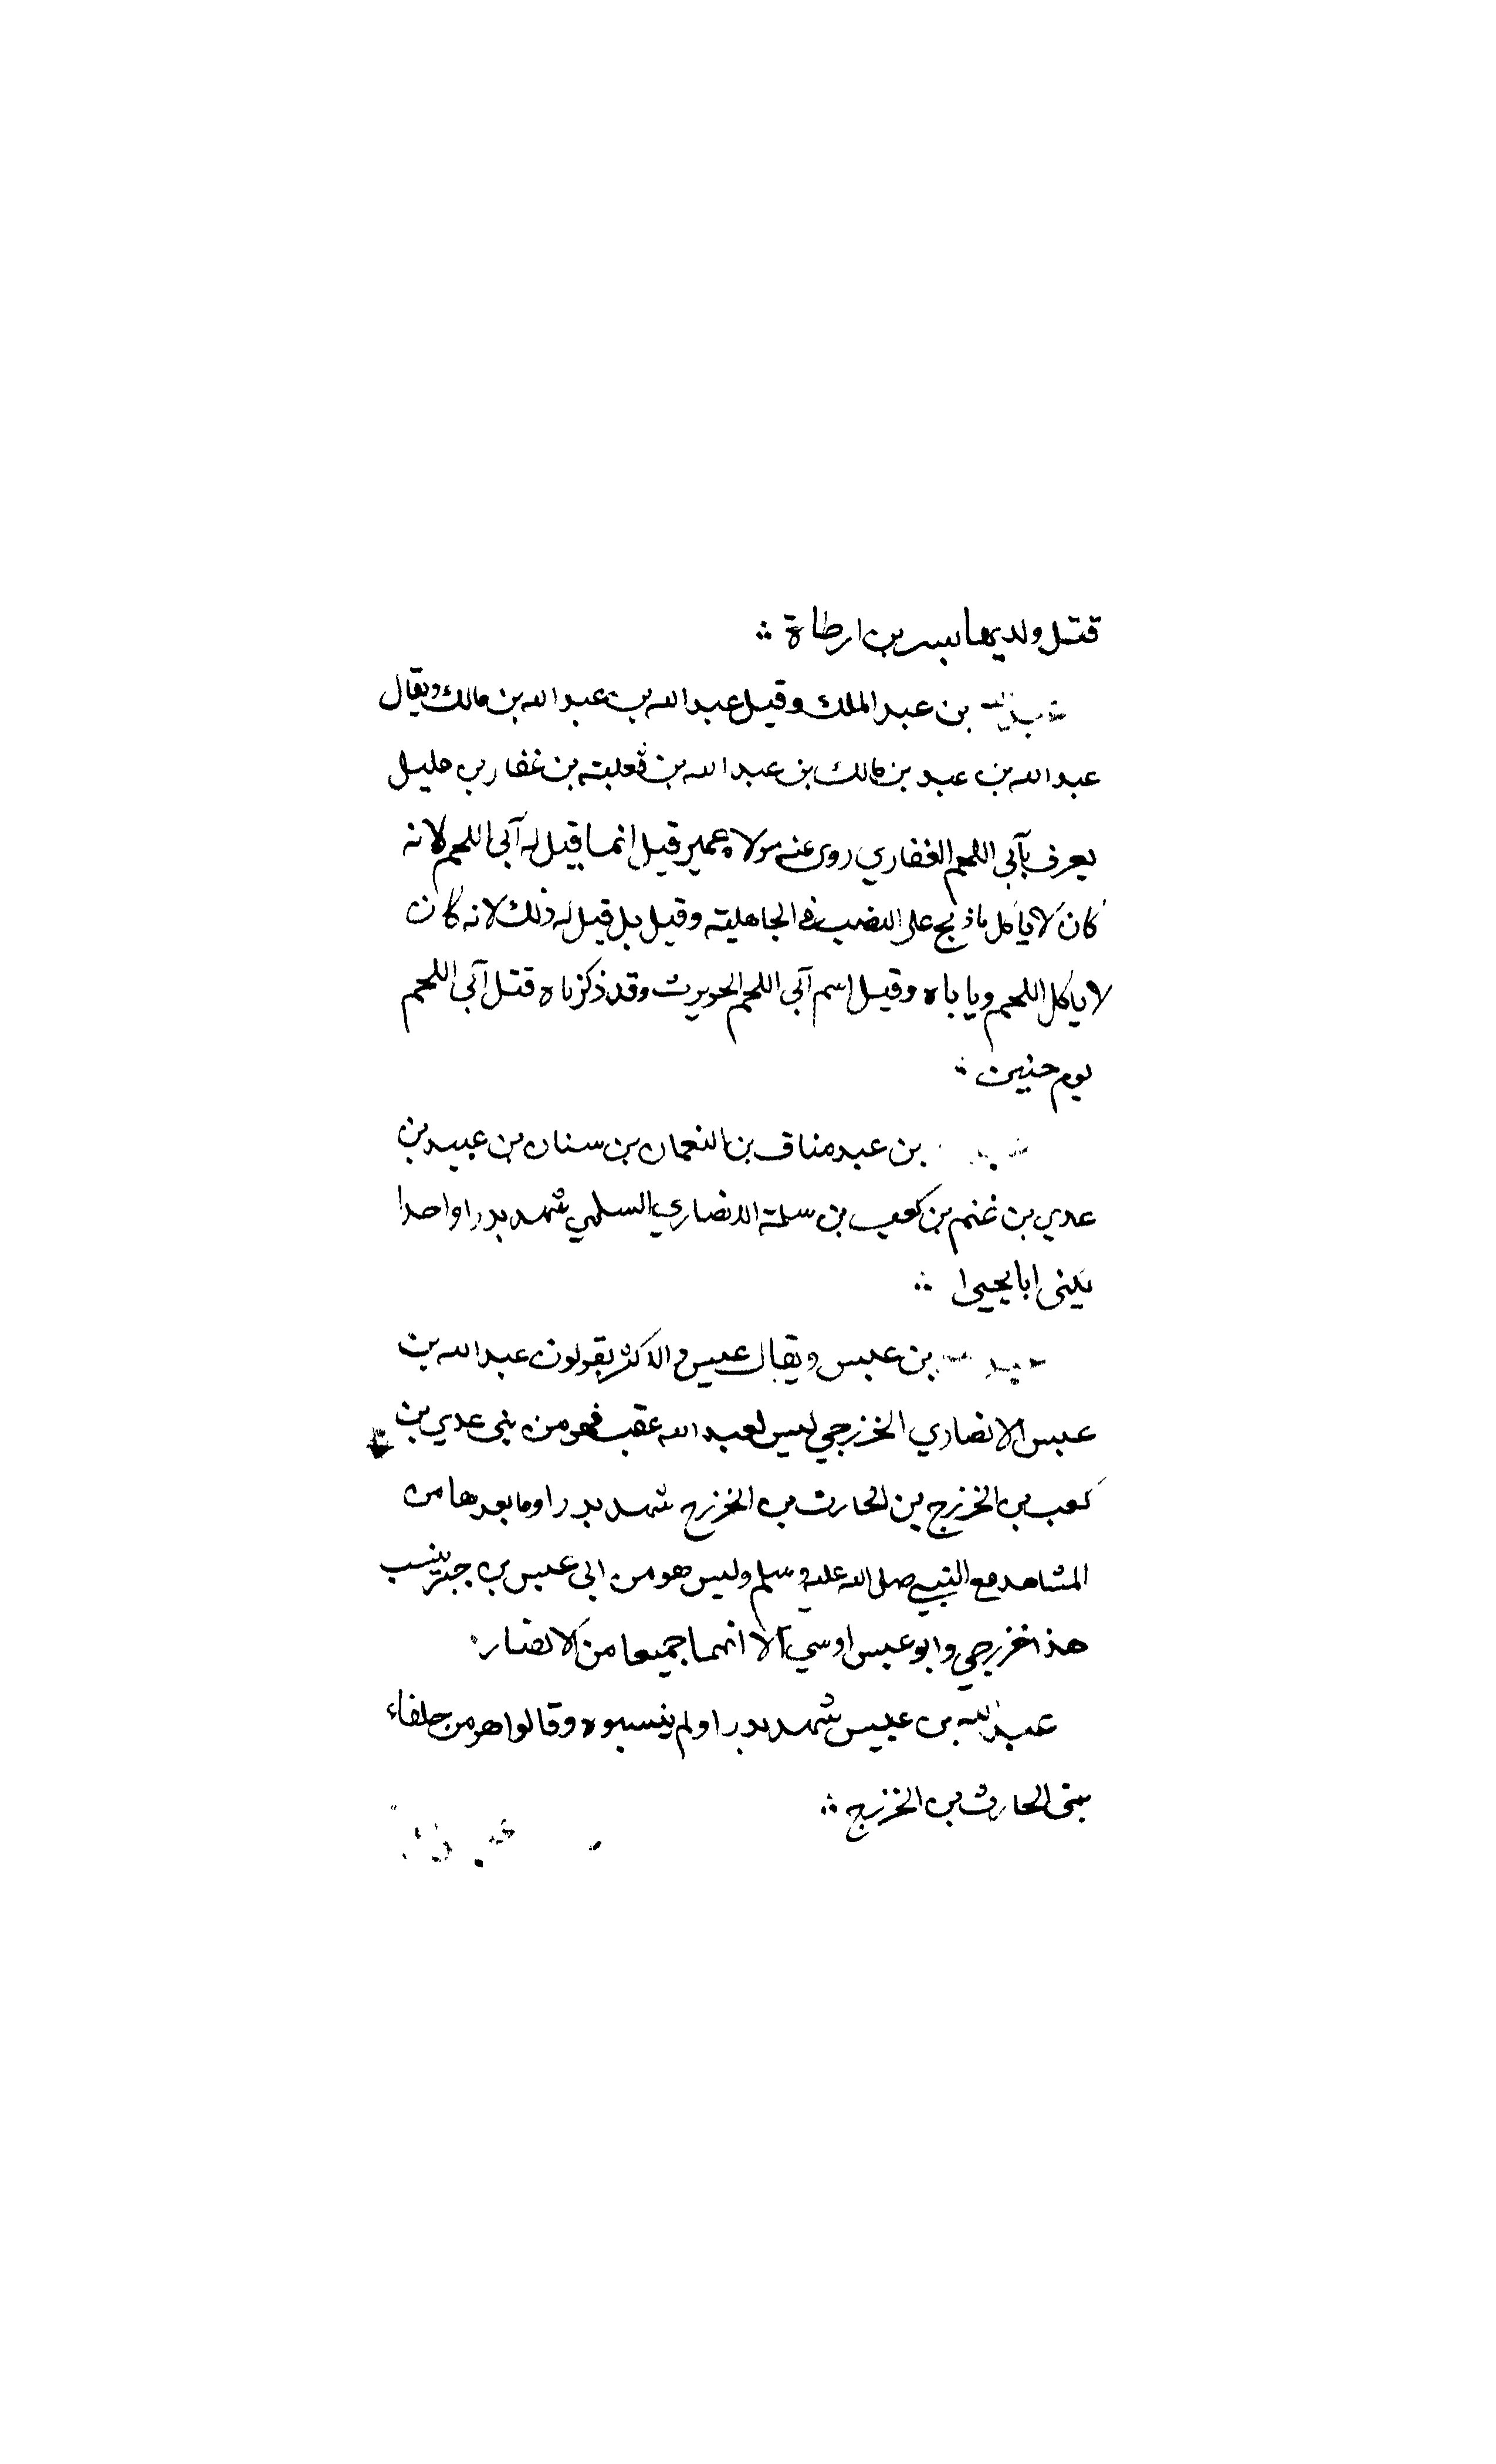 قتل ولديها بسر بن ارطاة ∴
عبد الله بن عبد الملك وقيل عبد الله بن عبد الله بن مالك ويقال
عبد الله بن عبد بن مالك بن عبد الله بن ثعلبته بن غفار بن مليل
يعرف بآبى اللحم الغفاري روى عنه مولاه عمير قيل انما قيل له آبى اللحم لانه
كان لا ياكل ما ذبح على النصب فى الجاهليته وقيل بل قيل له ذلك لانه كان
لا ياكل اللحم ويا باه وقيل اسم آبى اللحم الحويرث وقد ذكرناه قتل آبى اللحم
يوم حنين ∴
بن عبد مناف بن النعمان بن سنان بن عبيد بن
عدي بن غنم بن كعب بن سلمة الانصاري السلمي شهد بدرا واحدا
يكنى ابا يحيى ∴
عبد الله بن عبس ويقال عبيس والاكثر يقولون عبد الله بن
عبس الانصاري الخزرجي ليس لعبد الله عقب فهو من بنى عدي بن
كعب بن الخزرج بن الحارث بن الخزرج شهد بدرا وما بعدها من
المشاهد مع النبي صلى الله عليه وسلم وليس هو من ابى عبس بن جبر بنسب
هذا خزرجي وابو عبس اوسي الا انهما جميعا من الانصار
عبد الله بن عبيس شهد بدرا ولم ينسبوه وقالوا هو من حلفاء
بنى الحارث بن الخزرج ∴